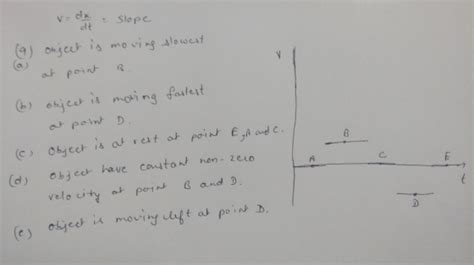 v = dx/dt = slope
(9) Object is moving slowest
(a) at point B.
(b) object is moving fastest
at point D.
(c) Object is at rest at point E, A and C.
(d) Object have constant non-zero
velocity at point B and D.
(e) object is moving left at point D.
V
B
A
C
E
t
D